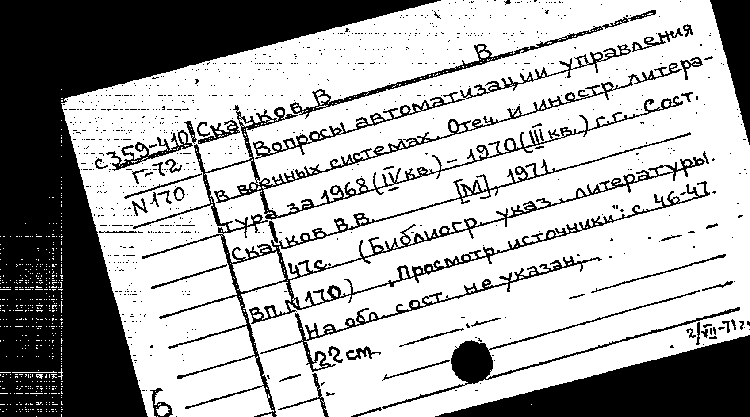 В
с 359-410 Скачков, В
Г-72 Вопросы автоматизации управления
N170 в военных системах. Отеч. и иностр. литера-
тура за 1968 (IV кв.) – 1970 (III кв.) г.г. Сост.
Скачков В.В. [М], 1971.
47с. (Библиогр. указ. литературы.
Вп. N170.) „Просмотр. источники": с. 46-47.
На обл. сост. не указан;
22 cm
6